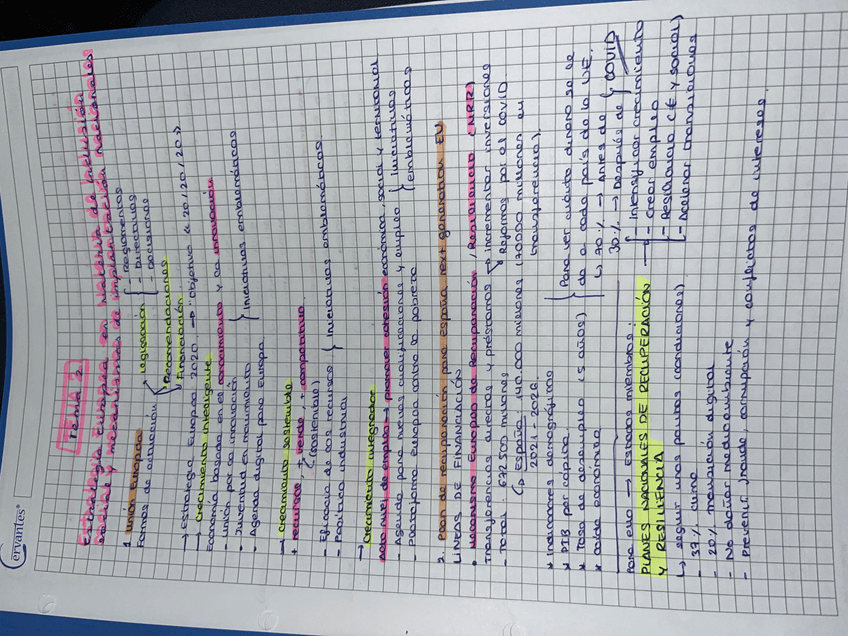 Cervantes®
TEMA 2
Estrategia Europea en Materia de inclusión
social y mecanismos de implantación nacionales
1. Unión Europea
Formas de actuación { → Legislación { - Reglamentos
- Directivas
- Decisiones
→ Recomendaciones
→ Financiación
→ Estrategia Europa 2020 → objetivo « 20/20/20 »
→ Crecimiento inteligente
Economía basada en el conocimiento y la innovación
- Unión por la innovación
- Juventud en movimiento
- Agenda digital para Europa } Iniciativas emblemáticas
→ Crecimiento sostenible
+ recursos, + verde, + competitiva
(sostenible)
- Eficacia de los recursos
- Política industrial } Iniciativas emblemáticas
→ Crecimiento integrador
Alto nivel de empleo → promover cohesión económica, social y territorial
- Agenda para nuevas cualificaciones y empleo
- Plataforma europea contra la pobreza } Iniciativas emblemáticas
2. Plan de recuperación para España Next generation EU
LÍNEAS DE FINANCIACIÓN
• Mecanismo Europeo de Recuperación y Resiliencia (MRR)
Transferencias directas y préstamos → incrementar inversiones
- Total: 672.500 millones reformas por el COVID
↳ España: 140.000 millones (70000 millones en
2021 - 2026. transferencia).
* Indicadores demográficos
* PIB per cápita
* Tasa de desempleo (5 años)
* Caída económica
} Para ver cuánto dinero se le
da a cada país de la UE.
↳ 70% → Antes de
30% → Después de } COVID
Para ello → Estados miembros:
PLANES NACIONALES DE RECUPERACIÓN
Y RESILIENCIA
→ { - Intensificar crecimiento
- Crear empleo
- Resiliencia (E y social)
- Acelerar transiciones
↳ seguir unas pautas (condiciones)
- 37% clima
- 20% transición digital
- No dañar medio ambiente
- Prevenir fraude, corrupción y conflictos de intereses.